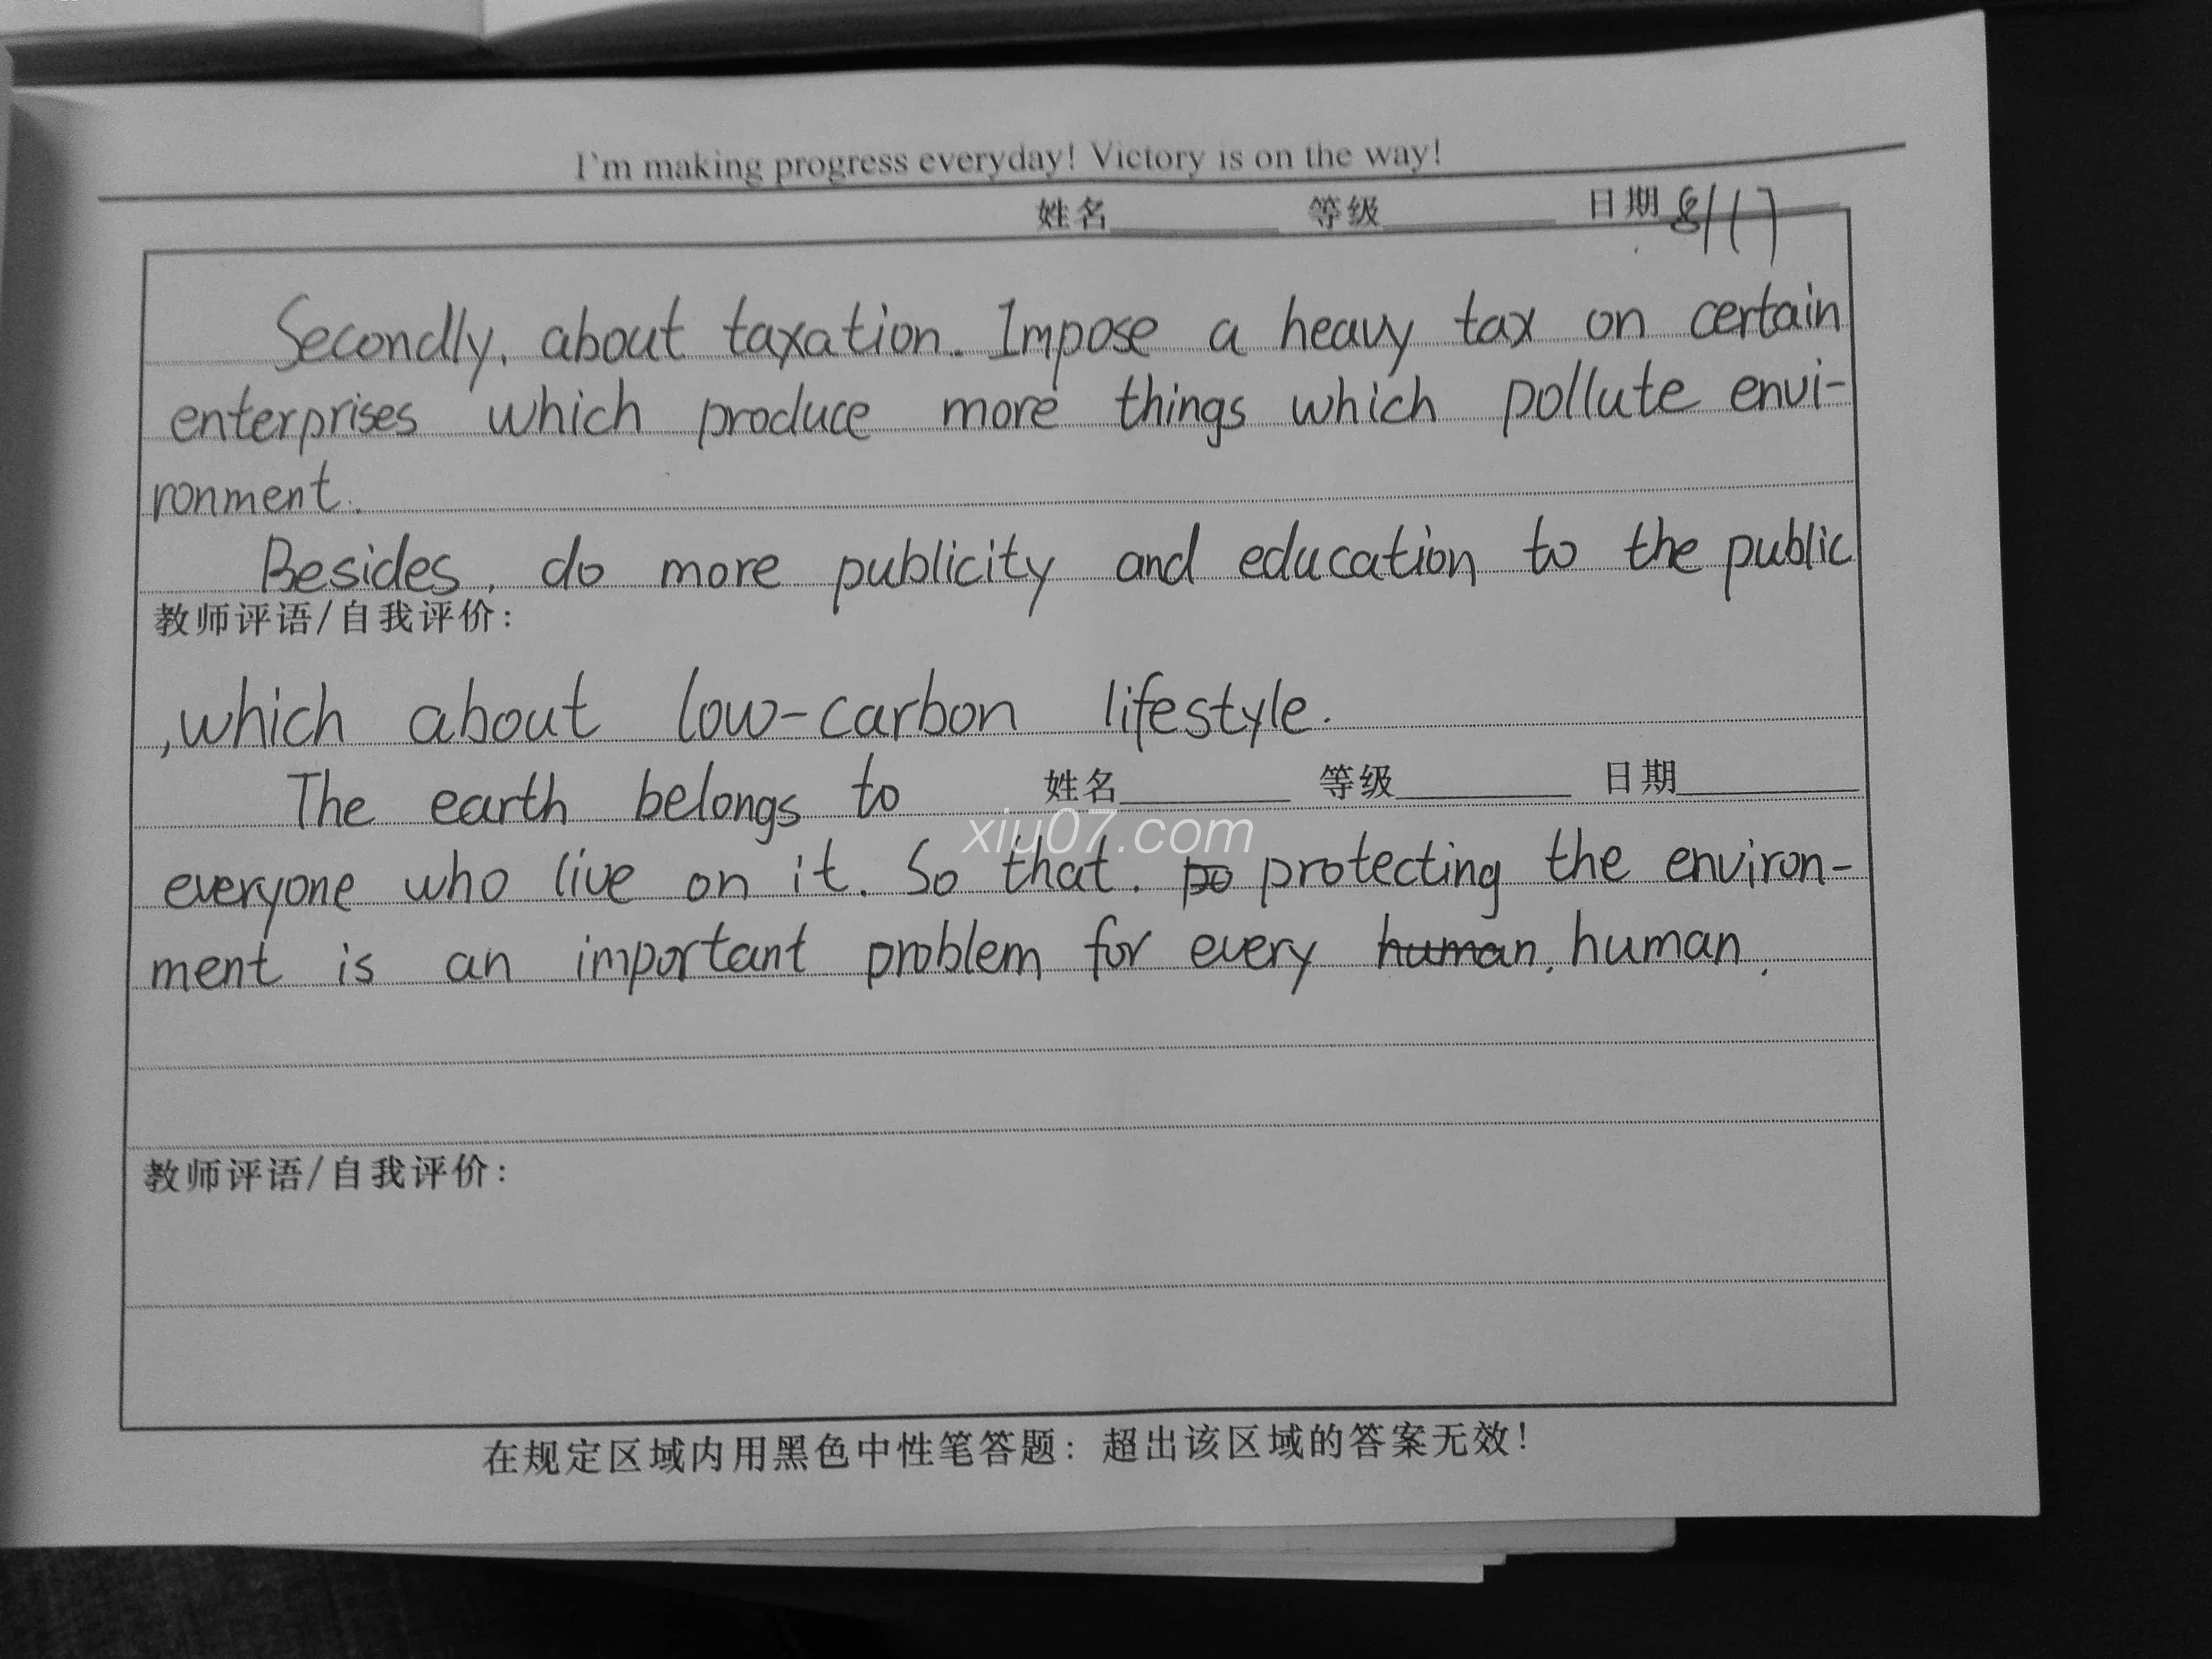 I'm making progress everyday! Victory is on the way!
姓名 等级 日期 8/17
Secondly, about taxation. Impose a heavy tax on certain
enterprises which produce more things which pollute envi-
ronment.
Besides, do more publicity and education to the public
教师评语/自我评价:
,which about low-carbon lifestyle.
姓名 等级 日期
The earth belongs to
xiu07.com
everyone who live on it. So that. protecting the environ-
ment is an important problem for every human. human.
教师评语/自我评价:
在规定区域内用黑色中性笔答题: 超出该区域的答案无效!